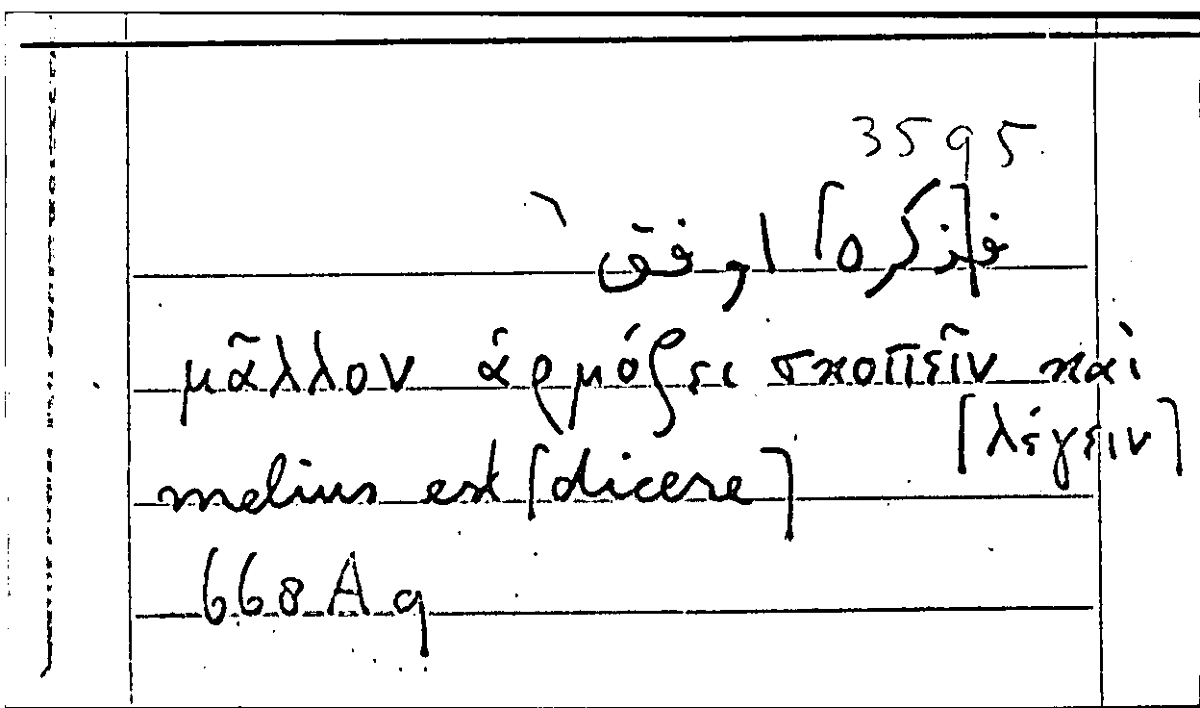 3595
فذ]كره[ اوفق
μᾶλλον ἁρμόζει σκοπεῖν καὶ
[λέγειν]
melius est [dicere]
668 A 9